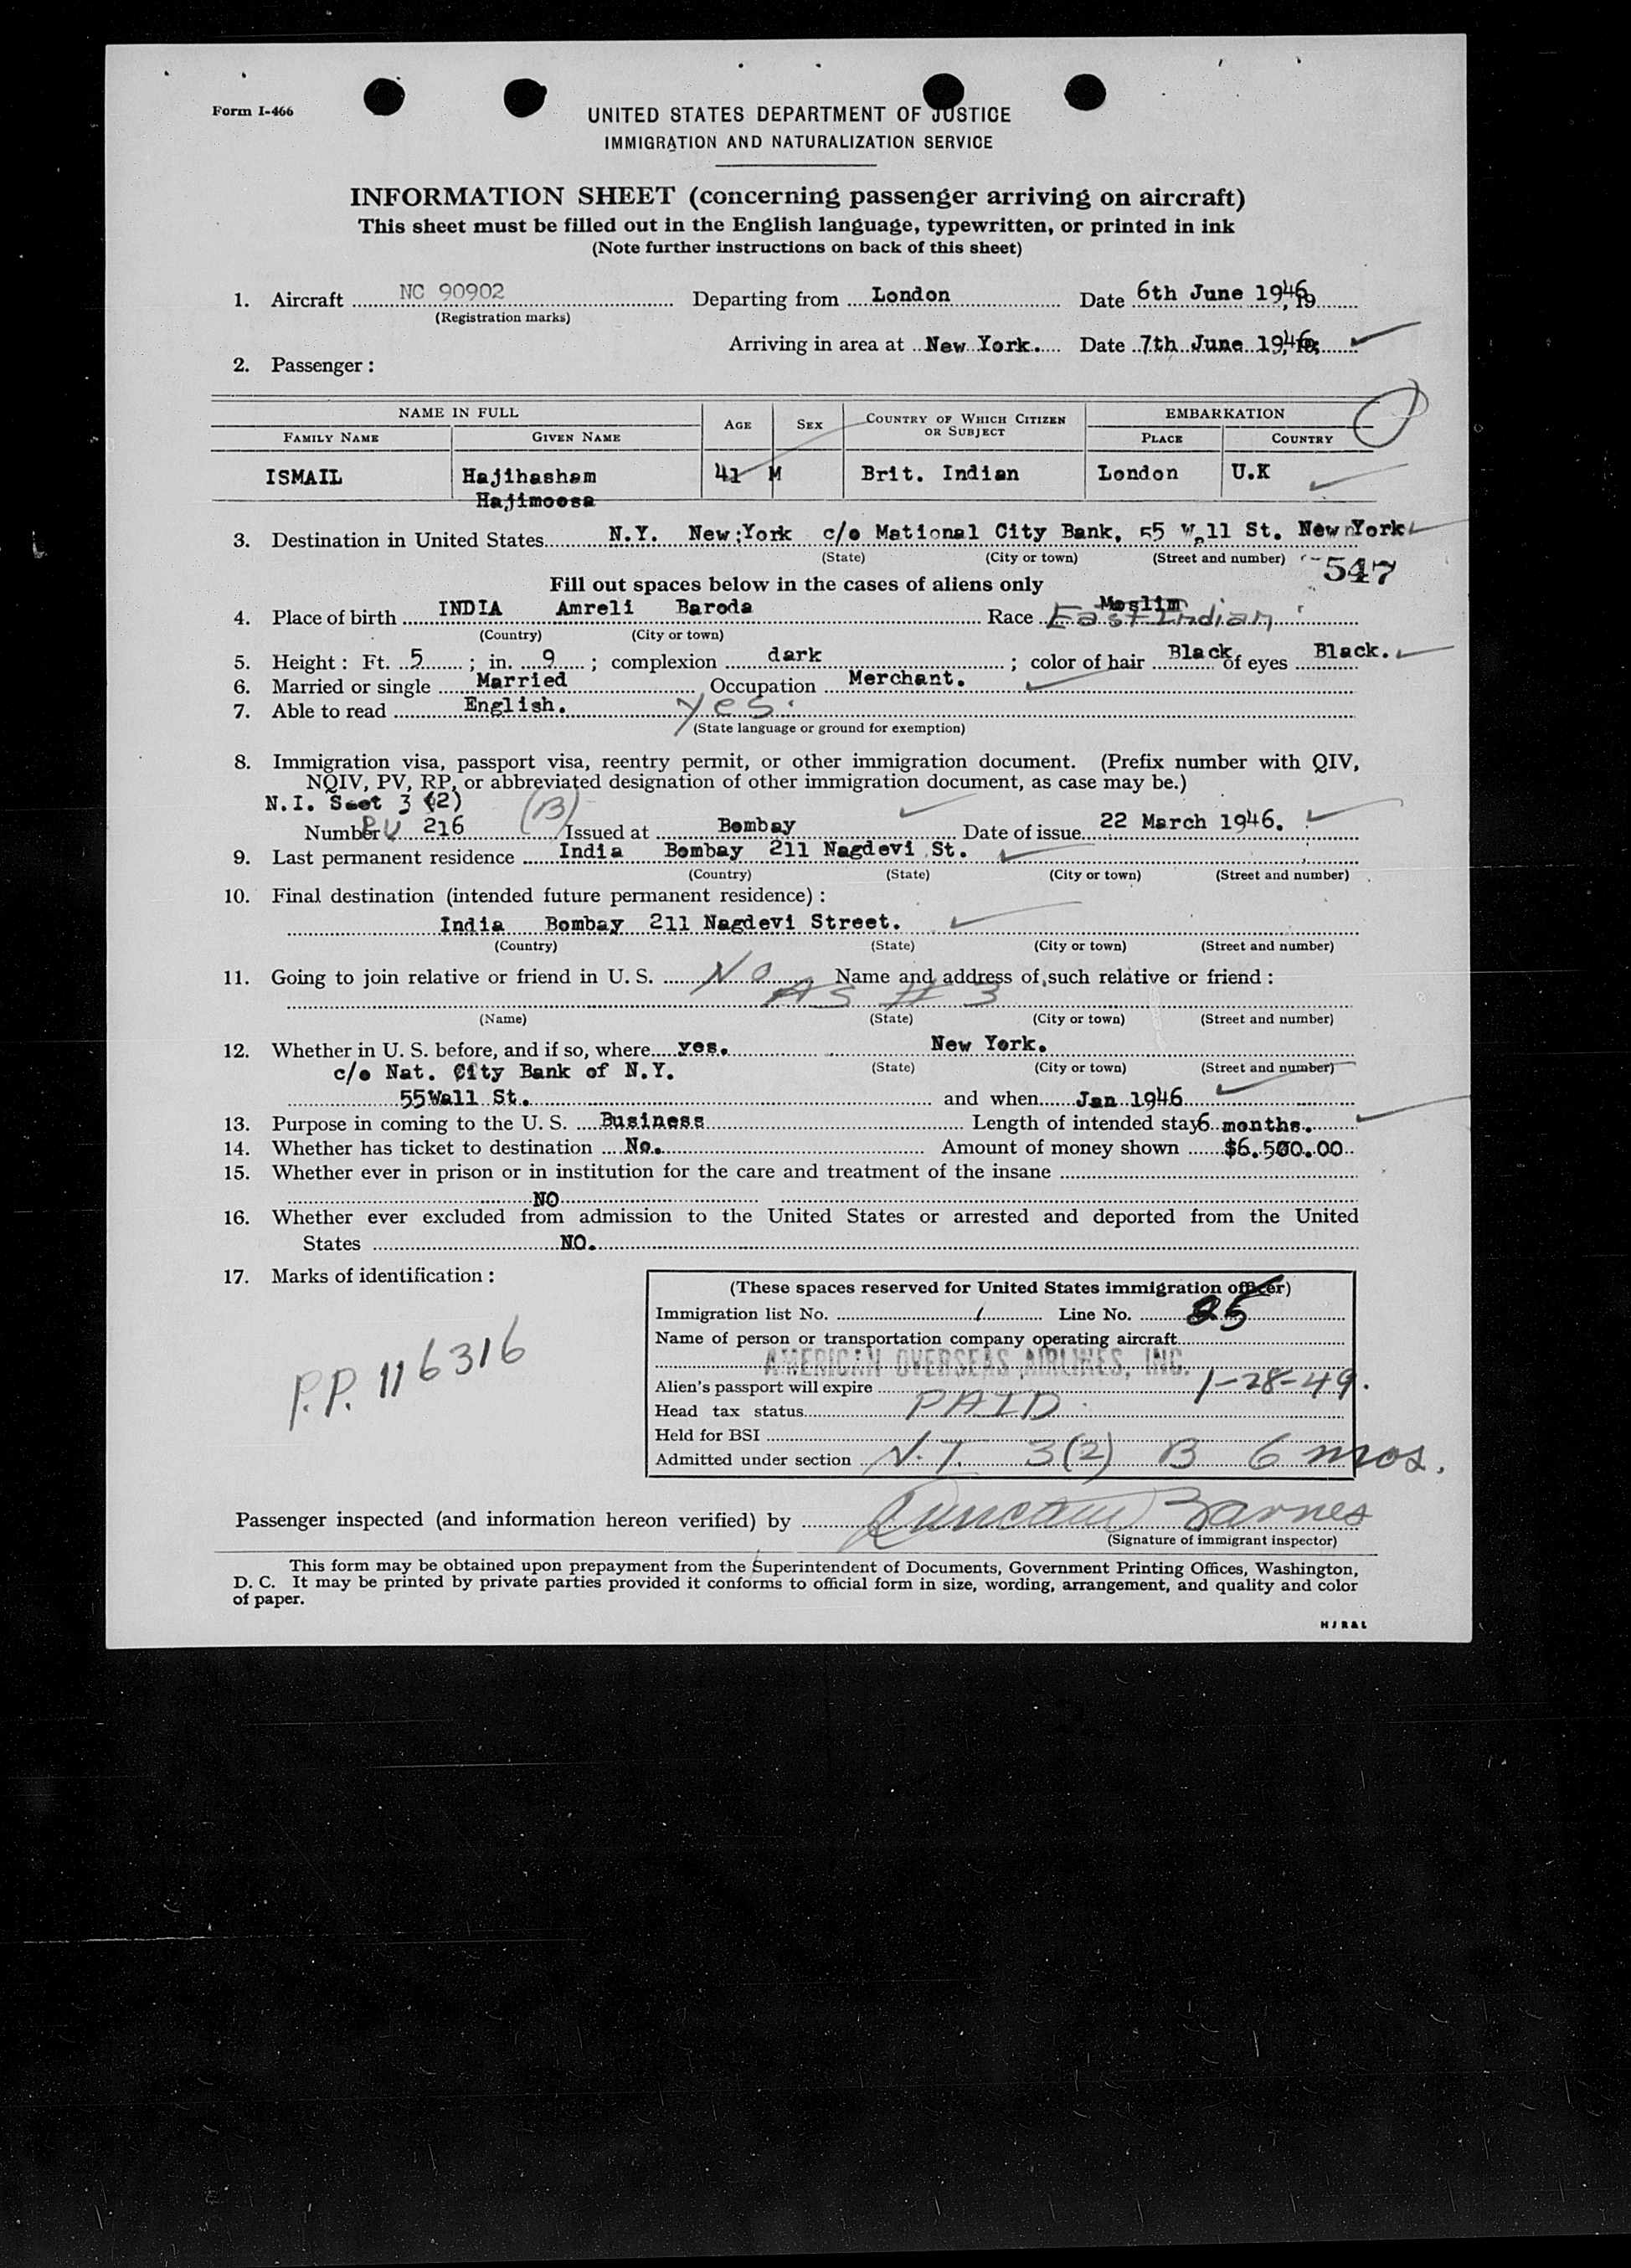 Form I-466
UNITED STATES DEPARTMENT OF JUSTICE
IMMIGRATION AND NATURALIZATION SERVICE
INFORMATION SHEET (concerning passenger arriving on aircraft)
This sheet must be filled out in the English language, typewritten, or printed in ink
(Note further instructions on back of this sheet)
1. Aircraft NC 90902 Departing from London Date 6th June 1946, 19
(Registration marks)
Arriving in area at New York. Date 7th June 1946,
2. Passenger :
NAME IN FULL AGE SEX COUNTRY OF WHICH CITIZEN OR SUBJECT EMBARKATION
FAMILY NAME GIVEN NAME PLACE COUNTRY
ISMAIL Hajihasham 41 M Brit. Indian London U.K
Hajimoosa
3. Destination in United States N.Y. New:York c/o Mational City Bank, 55 Wall St. New York
(State) (City or town) (Street and number)
547
Fill out spaces below in the cases of aliens only
4. Place of birth INDIA Amreli Baroda Race Moslim East Indian
(Country) (City or town)
5. Height : Ft. 5 ; in. 9 ; complexion dark ; color of hair Black of eyes Black.
6. Married or single Married Occupation Merchant.
7. Able to read English. yes.
(State language or ground for exemption)
8. Immigration visa, passport visa, reentry permit, or other immigration document. (Prefix number with QIV,
NQIV, PV, RP, or abbreviated designation of other immigration document, as case may be.)
N.I. Sect 3 (2) (B)
Number PV 216 Issued at Bombay Date of issue 22 March 1946.
9. Last permanent residence India Bombay 211 Nagdevi St.
(Country) (State) (City or town) (Street and number)
10. Final destination (intended future permanent residence) :
India Bombay 211 Nagdevi Street.
(Country) (State) (City or town) (Street and number)
11. Going to join relative or friend in U. S. No Name and address of such relative or friend :
AS # 3
(Name) (State) (City or town) (Street and number)
12. Whether in U. S. before, and if so, where yes. New York.
c/o Nat. City Bank of N.Y. (State) (City or town) (Street and number)
55Wall St. and when Jan 1946
13. Purpose in coming to the U. S. Business Length of intended stay 6 months.
14. Whether has ticket to destination No. Amount of money shown $6.500.00
15. Whether ever in prison or in institution for the care and treatment of the insane
NO
16. Whether ever excluded from admission to the United States or arrested and deported from the United
States NO.
17. Marks of identification :
P.P. 116316
(These spaces reserved for United States immigration officer)
Immigration list No. 1 Line No. 25
Name of person or transportation company operating aircraft
AMERICAN OVERSEAS AIRLINES, INC.
Alien's passport will expire 1-28-49.
Head tax status PAID
Held for BSI
Admitted under section N.I. 3(2) B 6 mos.
Passenger inspected (and information hereon verified) by Duncan Barnes
(Signature of immigrant inspector)
This form may be obtained upon prepayment from the Superintendent of Documents, Government Printing Offices, Washington,
D. C. It may be printed by private parties provided it conforms to official form in size, wording, arrangement, and quality and color
of paper.
HJR&L